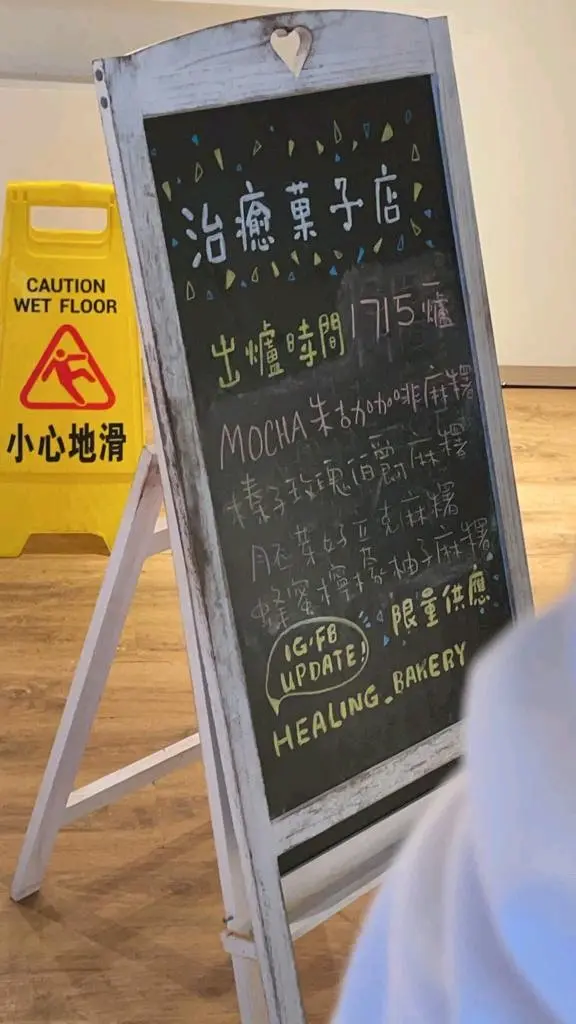 CAUTION
WET FLOOR
小心地滑
治癒菓子店
出爐時間 1715一爐
MOCHA朱古力咖啡麻糬
榛子玫瑰伯爵麻糬
開心果朱古力麻糬
蜂蜜檸檬柚子麻糬
限量供應
IG·FB
UPDATE!
HEALING_BAKERY